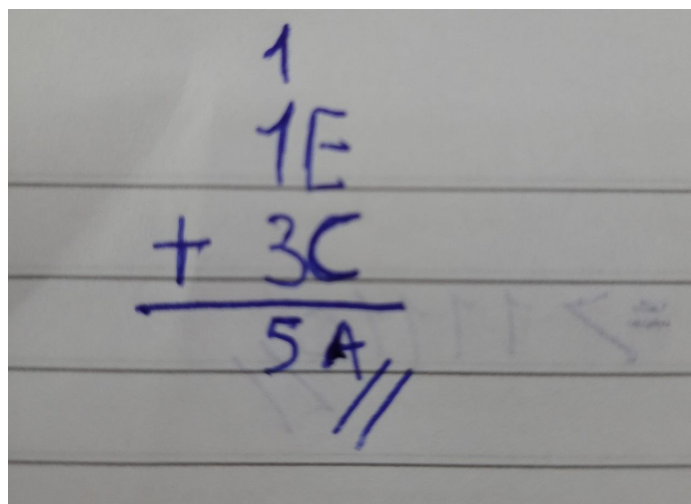 1
1E
+ 3C
5A//